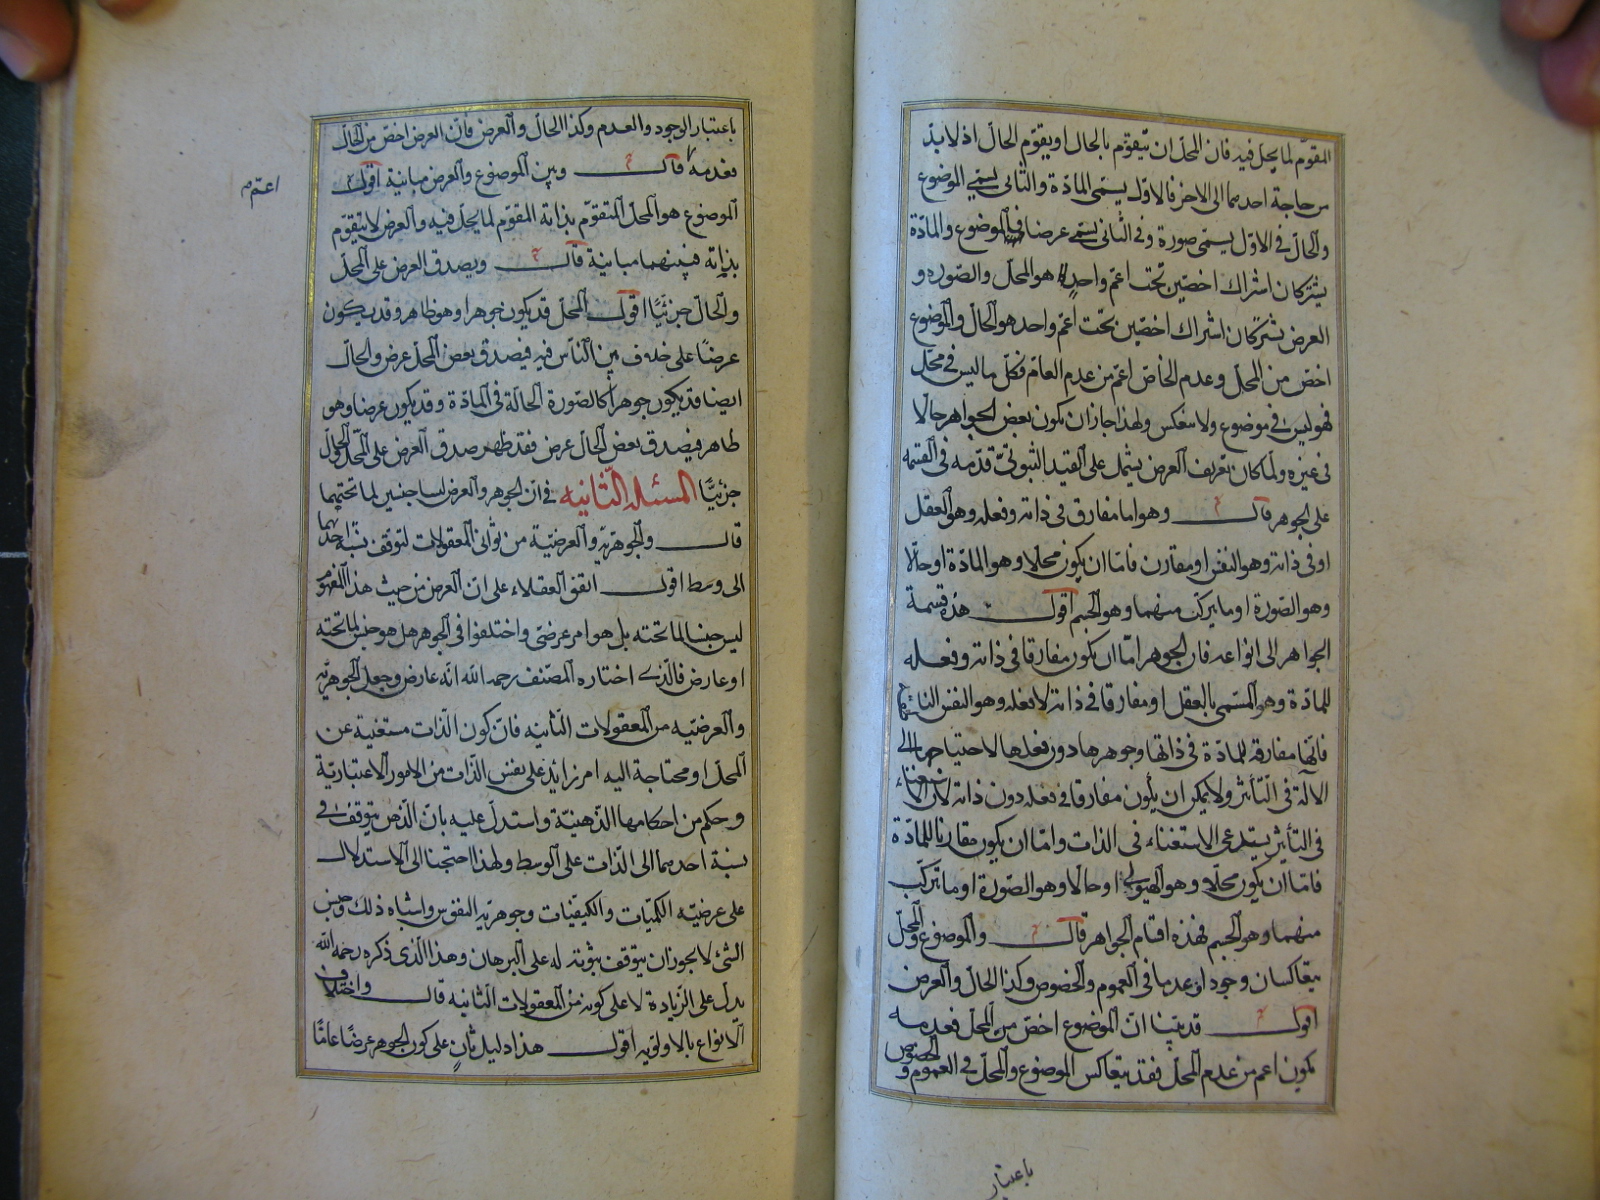 المقوم لما يحل فيه فان المحل ان يتقوم بالحال او يقوم الحال اذ لا بد
من حاجة احدهما الى الاخر فالاول يسمى المادة والثانى يسمى الموضوع
والحال فى الاول يسمى صورة وفى الثانى يسمى عرضا فالموضوع والمادة
يشتركان اشتراك اخصين تحت اعم واحد هو المحل والصورة و
العرض يشتركان اشتراك اخصين تحت اعم واحد هو الحال والموضوع
اخص من المحل وعدم الخاص اعم من عدم العام فكل ما ليس فى محل
فهو ليس فى موضوع ولا ينعكس ولهذا جاز ان يكون بعض الجواهر حالا
فى غيره ولما كان تعريف العرض يشمل على القيد الثبوتى قدمه فى القسمة
على الجوهر قال وهو اما مفارق فى ذاته وفعله وهو العقل
او فى ذاته وهو النفس او مقارن فاما ان يكون محلا وهو المادة او حالا
وهو الصورة او ما يتركب منهما وهو الجسم اقول هذه قسمة
الجواهر الى انواعه فان الجوهر اما ان يكون مفارقا فى ذاته وفعله
للمادة وهو المسمى بالعقل او مفارقا فى ذاته لا فعله وهو النفس الناطقة
فانها مفارقة للمادة فى ذاتها وجوهرها دون فعلها لاحتياجها الى
الآلة فى التأثير ولا يمكن ان يكون مفارقا فى فعله دون ذاته لان الاستغناء
فى التأثير يستدعى الاستغناء فى الذات واما ان يكون مقارنا للمادة
فاما ان يكون محلا وهو الهيولى او حالا وهو الصورة او ما يتركب
منهما وهو الجسم فهذه اقسام الجواهر قال والموضوع والمحل
يتعاكسان وجودا وعدما فى العموم والخصوص وكذا الحال والعرض
اقول قد بينا ان الموضوع اخص من المحل فعدمه
يكون اعم من عدم المحل فقد يتعاكس الموضوع والمحل فى العموم والخصوص
باعتبار
باعتبار الوجود والعدم وكذا الحال والعرض فان العرض اخص من الحال
فعدمه قال وبين الموضوع والعرض مباينة اقول
اعم
الموضوع هو المحل المتقوم بذاته المقوم لما يحل فيه والعرض لا يتقوم
بذاته فبينهما مباينة قال ويصدق العرض على المحل
والحال جزئيا اقول المحل قد يكون جوهرا وهو ظاهر وقد يكون
عرضا على خلاف بين الناس فيه فيصدق بعض المحل عرض والحال
ايضا قد يكون جوهرا كالصورة الحالة فى المادة وقد يكون عرضا وهو
ظاهر فيصدق بعض الحال عرض فقد ظهر صدق العرض على المحل والحال
جزئيا المسئلة الثانية فى ان الجوهر والعرض ليسا جنسين لما تحتهما
قال والجوهرية والعرضية من ثوانى المعقولات لتوقف نسبة احديهما
الى وسط اقول اتفق العقلاء على ان العرض من حيث هذا المفهوم
ليس جنسا لما تحته بل هو امر عرضى واختلفوا فى الجوهر هل هو جنس لما تحته
او عارض فالذى اختاره المصنف رحمه الله انه عارض وجعل الجوهرية
والعرضيه من المعقولات الثانيه فان كون الذات مستغنية عن
المحل او محتاجة اليه امر زائد على نفس الذات من الامور الاعتبارية
وحكم من احكامها الذهنية واستدل عليه بان الذهن يتوقف فى
نسبة احدهما الى الذات على الوسط ولهذا احتجنا الى الاستدلال
على عرضيه الكميات والكيفيات وجوهرية النفوس واشباه ذلك وجنس
الشئ لا يجوز ان يتوقف ثبوته له على البرهان وهذا الذى ذكره رحمه الله
يدل على الزيادة لا على كونه من المعقولات الثانيه قال واختلاف
الانواع بالاولويه اقول هذا دليل ثان على كون الجوهر عرضا عاما